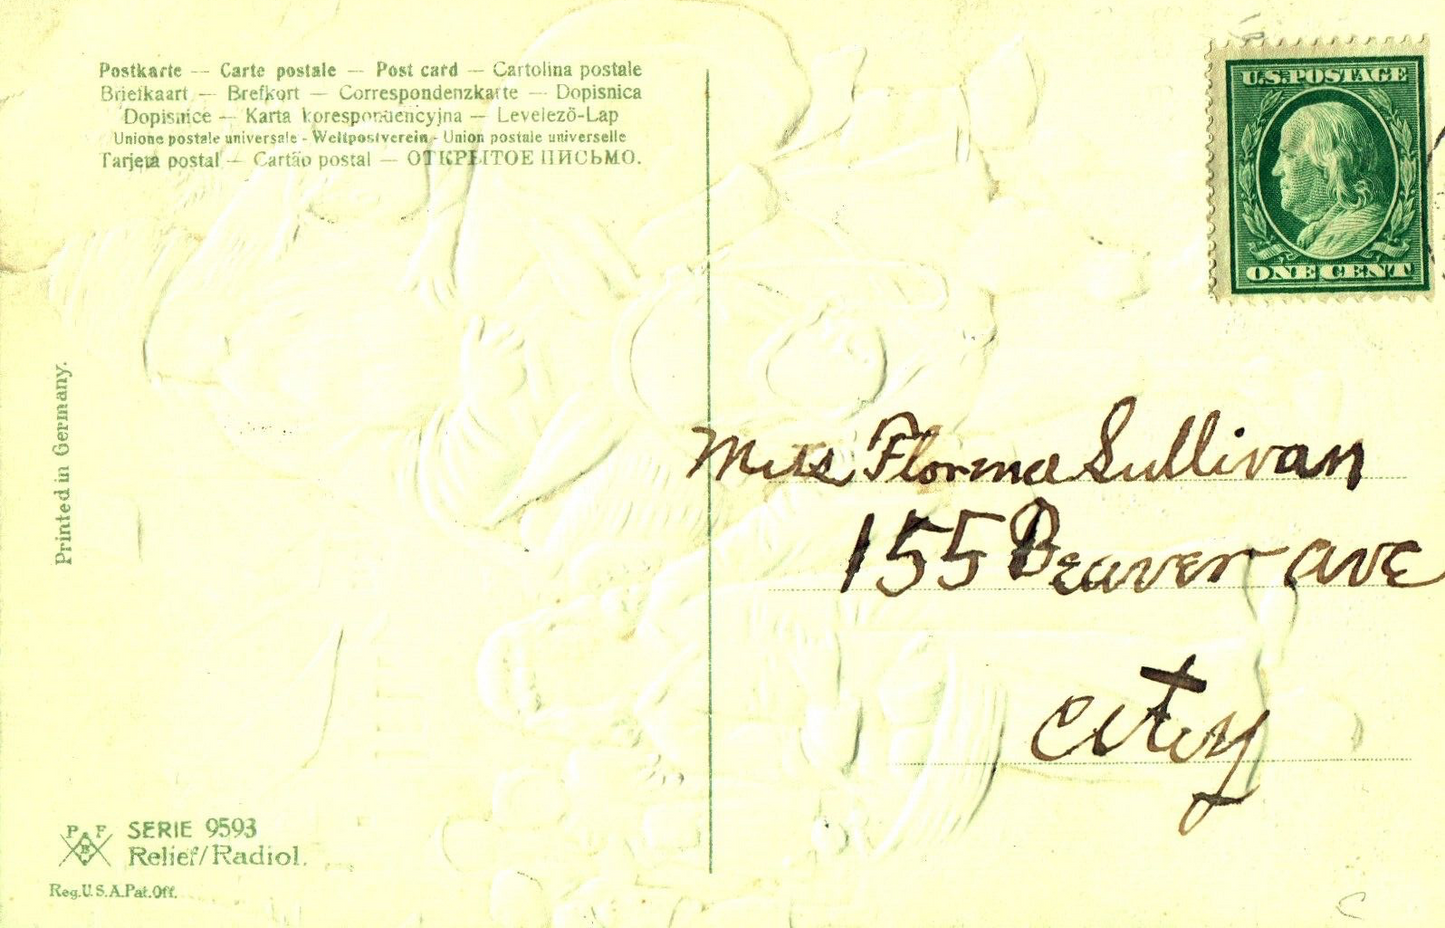 Postkarte — Carte postale — Post card — Cartolina postale
Briefkaart — Brefkort — Correspondenzkarte — Dopisnica
Dopisnice — Karta korespondencyjna — Levelező-Lap
Unione postale universale - Weltpostverein - Union postale universelle
Tarjeta postal — Cartão postal — ОТКРЫТОЕ ПИСЬМО.
U.S. POSTAGE
ONE CENT
Printed in Germany.
Miss Florence Sullivan
155 Beaver ave
City
P F
B
SERIE 9593
Relief/Radiol.
Reg. U.S.A. Pat. Off.